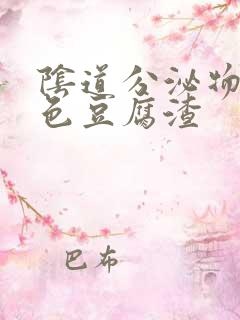 陰道分泌物
色豆腐渣
巴布